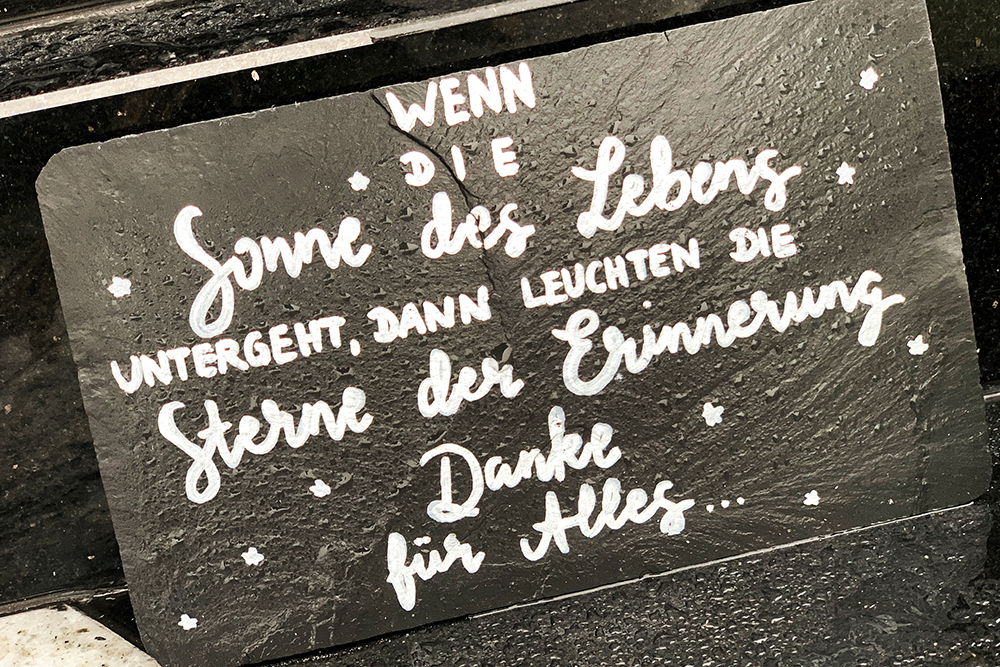 WENN
DIE
Sonne des Lebens
UNTERGEHT, DANN LEUCHTEN DIE
Sterne der Erinnerung
Danke
für Alles...